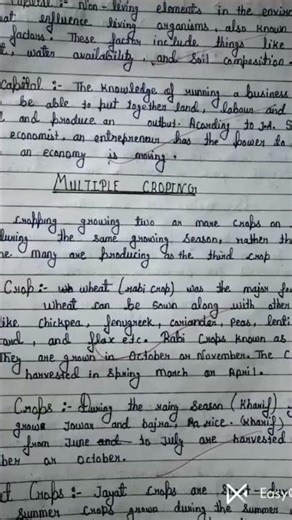 :- Non-living elements in the enviro
at enfluence living organisms, also known
factors. These factor include things like
t, water availability, and soil composition.
capital :- The Knowledge of running a business
be able to put together land, labour and
and produce an output. Acording to
economist, an entrepreneur has the power to
an economy is moving.
MULTIPLE CROPING
cropping growing two or more crops on
during the same growing season, rather th
many are producing as the third crop
Crop :- wheat (rabi crop) was the major
wheat can be sown along with other
like chickpea, fenugreek, coriander, peas, lenti
and flax etc. Rabi Crops known as
They are grown in October or November. The C
harvested in spring march or April.
Crops :- During the rainy season (Kharif)
grows Jowar and bajra rice. (Kharif)
from June and to July are harvested
ber or October.
Crops :- Jayat crops are
summer crops grown during the summer